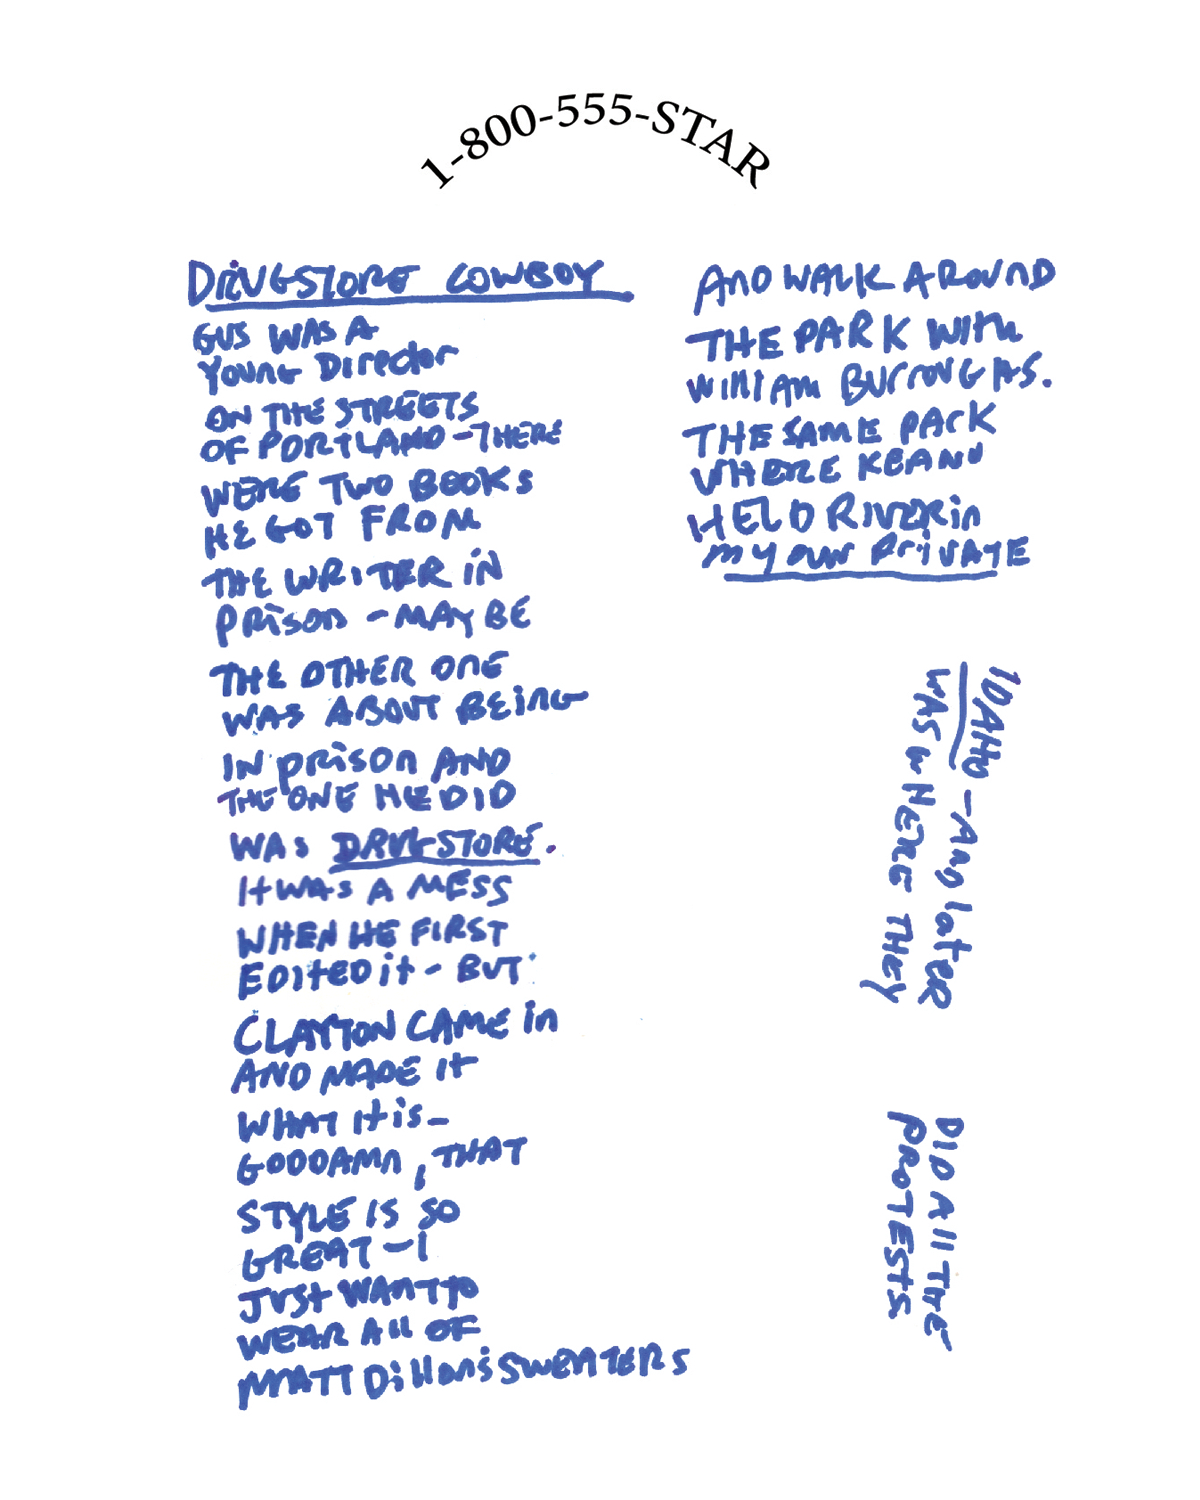 1-800-555-STAR
DRUGSTORE COWBOY
GUS WAS A
YOUNG DIRECTOR
ON THE STREETS
OF PORTLAND - THERE
WERE TWO BOOKS
HE GOT FROM
THE WRITER IN
PRISON - MAYBE
THE OTHER ONE
WAS ABOUT BEING
IN PRISON AND
THE ONE HE DID
WAS DRUGSTORE.
IT WAS A MESS
WHEN HE FIRST
EDITED it - BUT
CLAYTON CAME in
AND MADE IT
WHAT it is -
GODDAMN, THAT
STYLE IS SO
GREAT - I
JUST WANT TO
WEAR All OF
MATT Dillon's SWEATERS
AND WALK AROUND
THE PARK WITH
William BURROUGHS.
THE SAME PARK
WHERE KEANU
HELD RIVER in
MY OWN PRIVATE
IDAHO - AND later
WAS WHERE THEY
DID All THE
PROTESTS